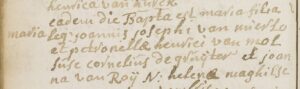 henrica van hurck
eadem die Bapta est maria filia
maria leg: joannis josephi van mierlo
et petronellæ henrici van mol
susc cornelius de gruijter et joan
na van Roÿ N: helenæ maghilse